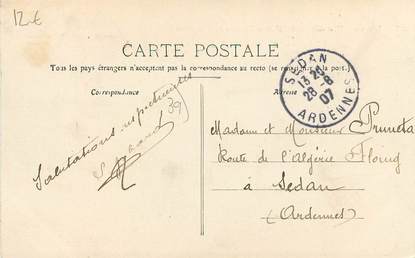 12 €
CARTE POSTALE
Tous les pays étrangers n'acceptent pas la correspondance au recto (se renseigner à la post.)
Correspondance
Adresse
SEDAN
13 20
28-8
07
ARDENNES
Salutations respectueuses
39
Madame et Monsieur Pruneta
Route de l'Algérie Floing
à Sedan
(Ardennes)